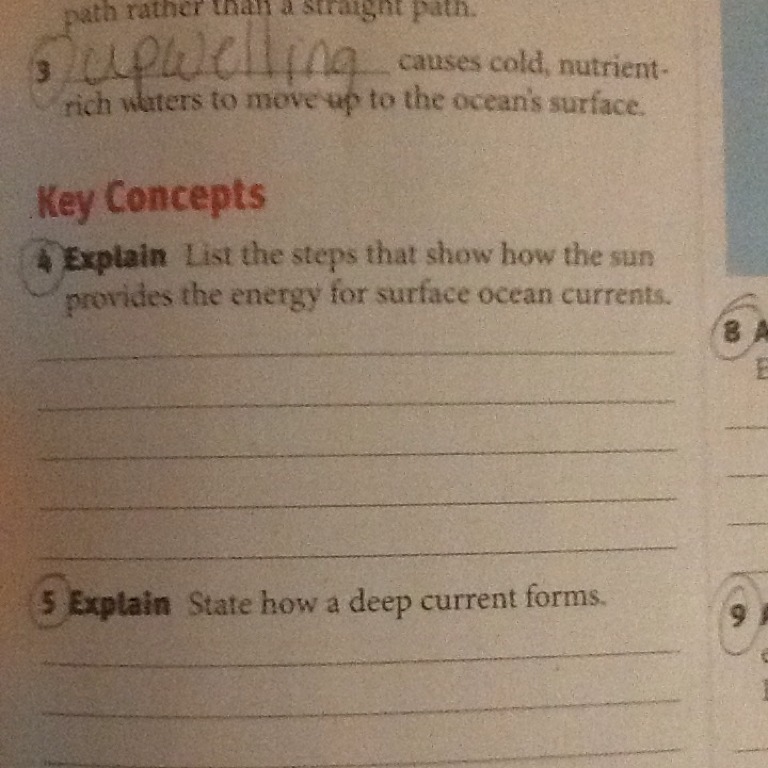 path rather than a straight path.
3 upwelling causes cold, nutrient-
rich waters to move up to the ocean's surface.
Key Concepts
4 Explain List the steps that show how the sun
provides the energy for surface ocean currents.
5 Explain State how a deep current forms.
8 A
E
9